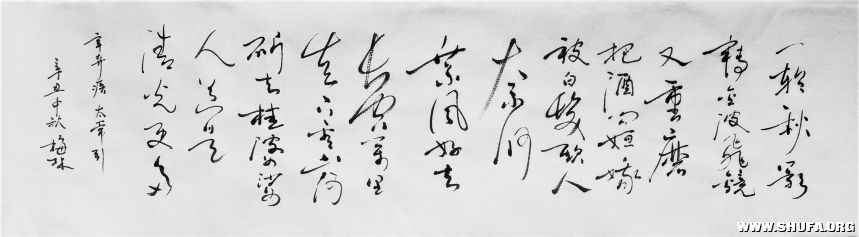 一輪秋影
轉金波飛鏡
又重磨
把酒问姮娥
被白髮欺人
奈何
乘風好去
長空萬里
直下看山河
斫去桂婆娑
人道是
清光更多
辛弃疾太常引
辛丑中秋梅
WWW.SHUFA.ORG